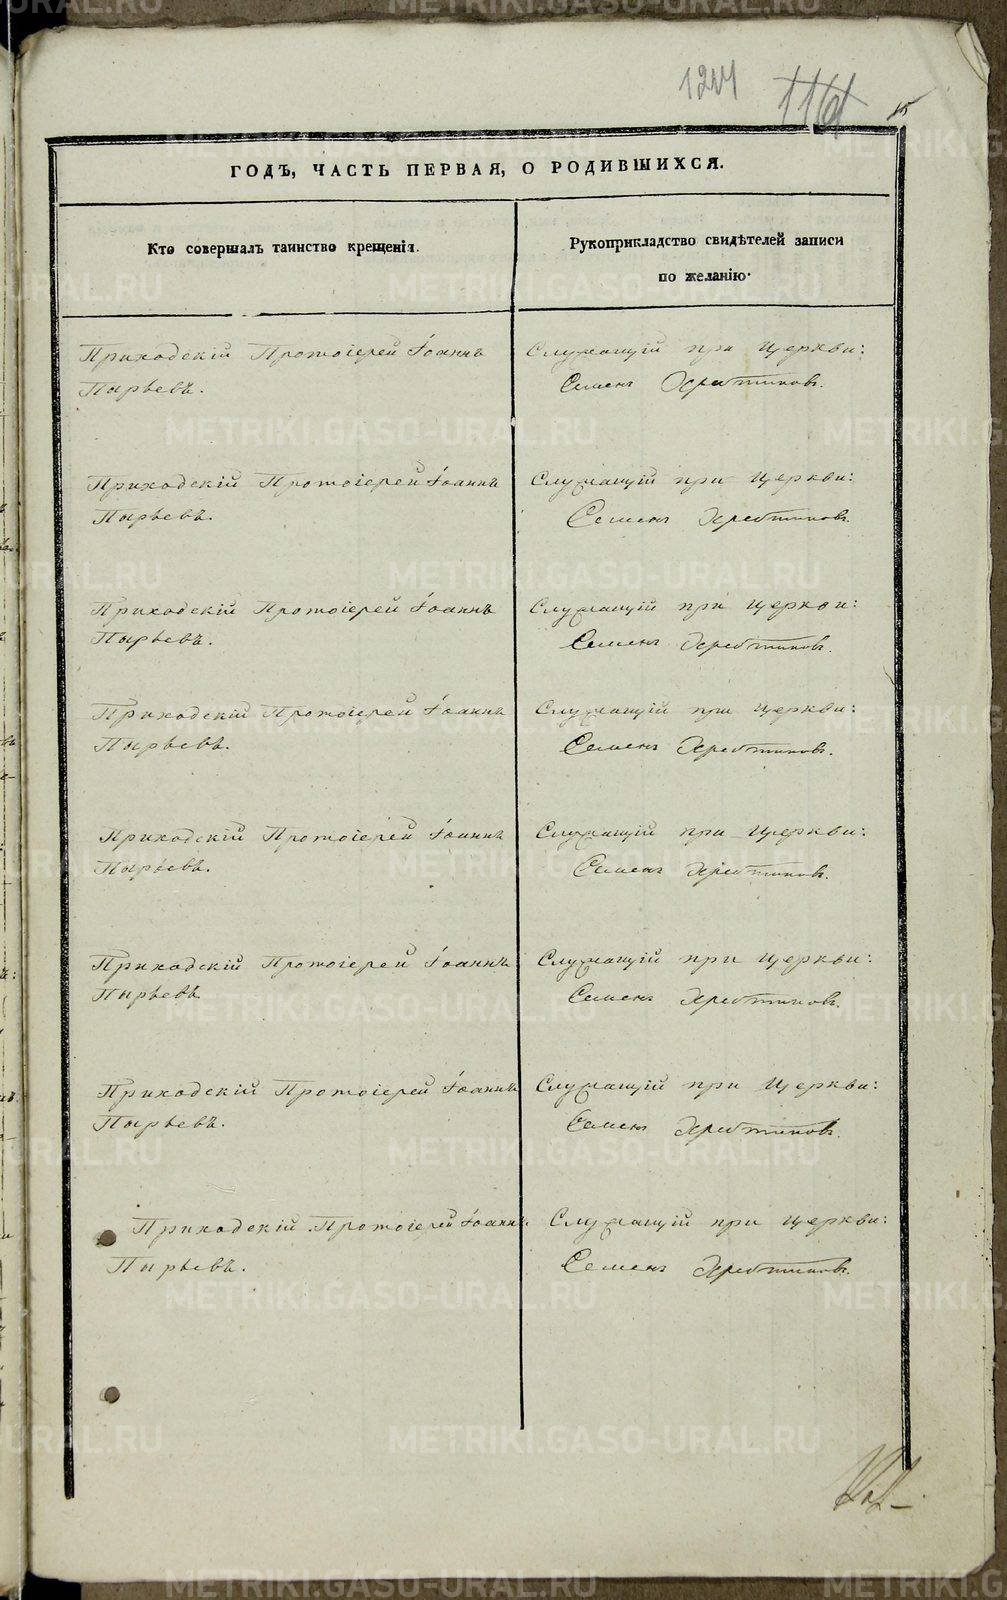 ГОДЪ, ЧАСТЬ ПЕРВАЯ, О РОДИВШИХСЯ.
Кто совершалъ таинство крещенія.
Рукоприкладство свидѣтелей записи
по желанію.
Приходскій Протоіерей Іоаннъ
Пырьевъ.
Служащій при Церкви:
Семенъ
Приходскій Протоіерей Іоаннъ
Пырьевъ.
Служащій при Церкви:
Семенъ
Приходскій Протоіерей Іоаннъ
Пырьевъ.
Служащій при Церкви:
Семенъ
Приходскій Протоіерей Іоаннъ
Пырьевъ.
Служащій при Церкви:
Семенъ
Приходскій Протоіерей Іоаннъ
Пырьевъ.
Служащій при Церкви:
Семенъ
Приходскій Протоіерей Іоаннъ
Пырьевъ
Служащій при Церкви:
Семенъ
Приходскій Протоіерей Іоаннъ
Пырьевъ.
Служащій при Церкви:
Семенъ
Приходскій Протоіерей Іоаннъ
Пырьевъ.
Служащій при Церкви:
Семенъ
METRIKI.GASO-URAL.RU